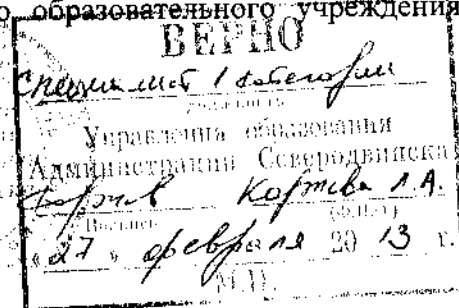 о образовательного учреждения
ВЕРНО
специалист 1 категории
должность
Управления образования
Администрации Северодвинска
Коржева Л.А.
(Ф.И.О.)
"27" февраля 20 13 г.
М.П.